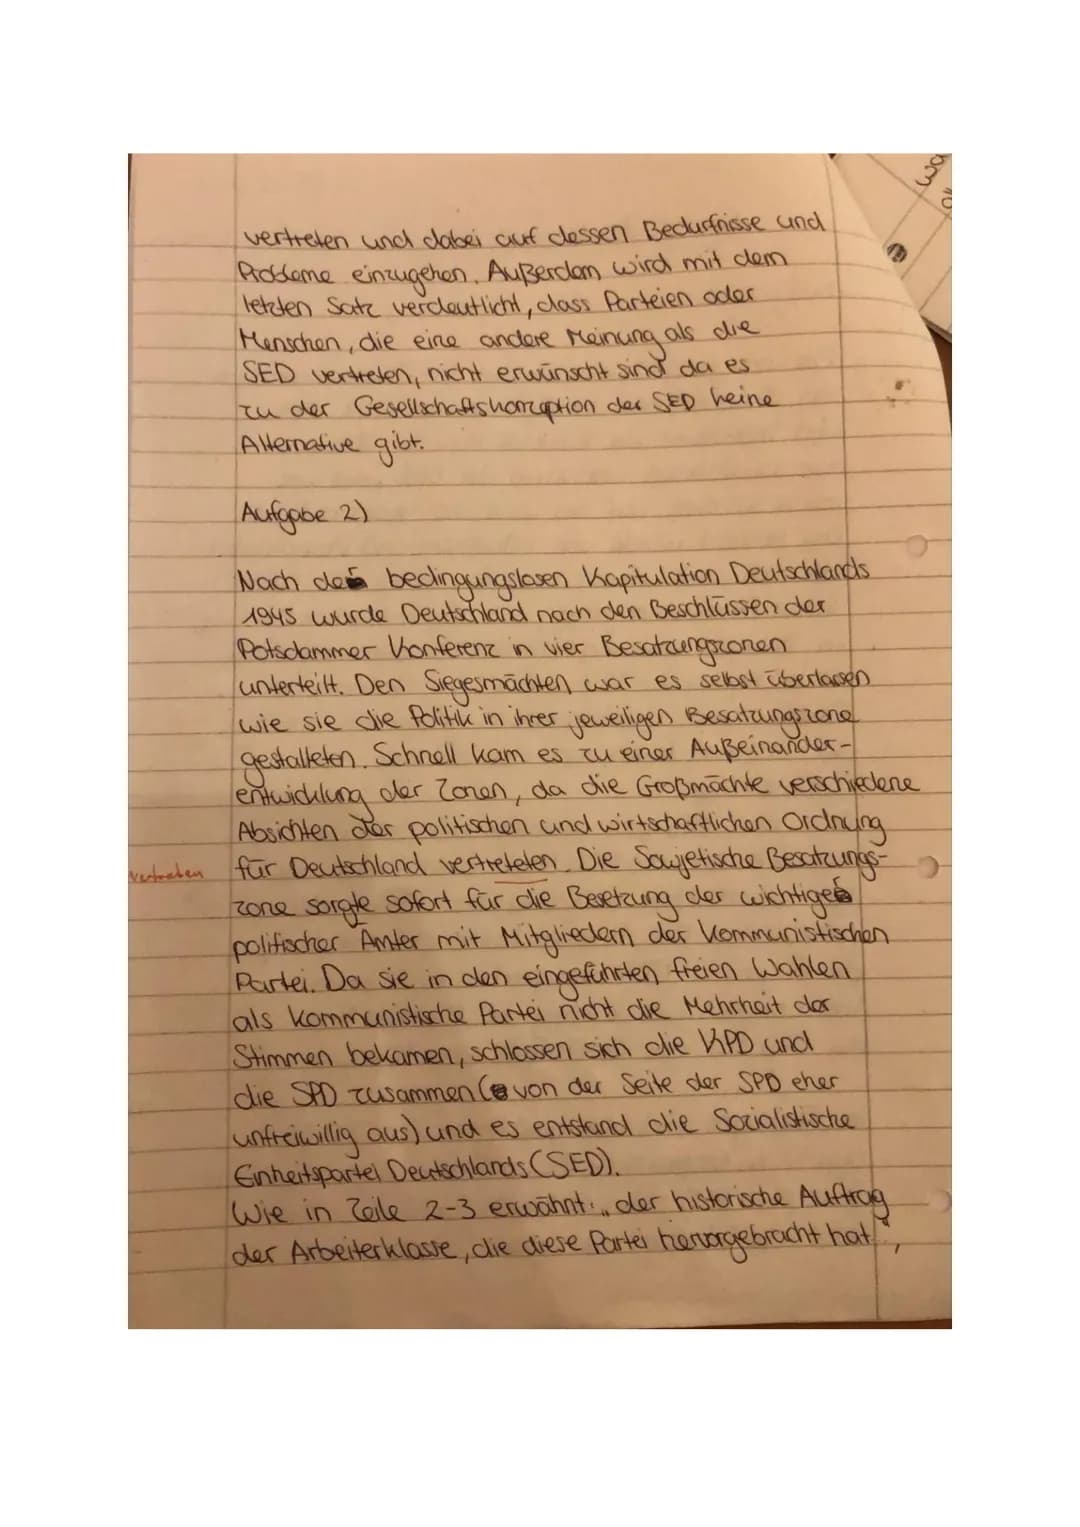 vertreten und dabei auf dessen Bedürfnisse und
Probleme einzugehen. Außerdem wird mit dem
letzten Satz verdeutlicht, dass Parteien oder
Menschen, die eine andere Meinung als die
SED vertreten, nicht erwünscht sind da es
zu der Gesellschaftskonzeption der SED keine
Alternative gibt.
Aufgabe 2)
Nach der bedingungslosen Kapitulation Deutschlands
1945 wurde Deutschland nach den Beschlüssen der
Potsdammer Konferenz in vier Besatzungszonen
unterteilt. Den Siegesmächten war es selbst überlassen
wie sie die Politik in ihrer jeweiligen Besatzungszone
gestalteten. Schnell kam es zu einer Außeinander-
entwicklung der Zonen, da die Großmächte verschiedene
Absichten der politischen und wirtschaftlichen Ordnung
vertraten für Deutschland vertreteten. Die Sowjetische Besatzungs-
zone sorgte sofort für die Besetzung der wichtige
politischer Ämter mit Mitgliedern der Kommunistischen
Partei. Da sie in den eingeführten freien Wahlen
als kommunistische Partei nicht die Mehrheit der
Stimmen bekamen, schlossen sich die KPD und
die SPD zusammen (von der Seite der SPD eher
unfreiwillig aus) und es entstand die Sozialistische
Einheitspartei Deutschlands (SED).
Wie in Zeile 2-3 erwähnt: „der historische Auftrag
der Arbeiterklasse, die diese Partei hervorgebracht hat",